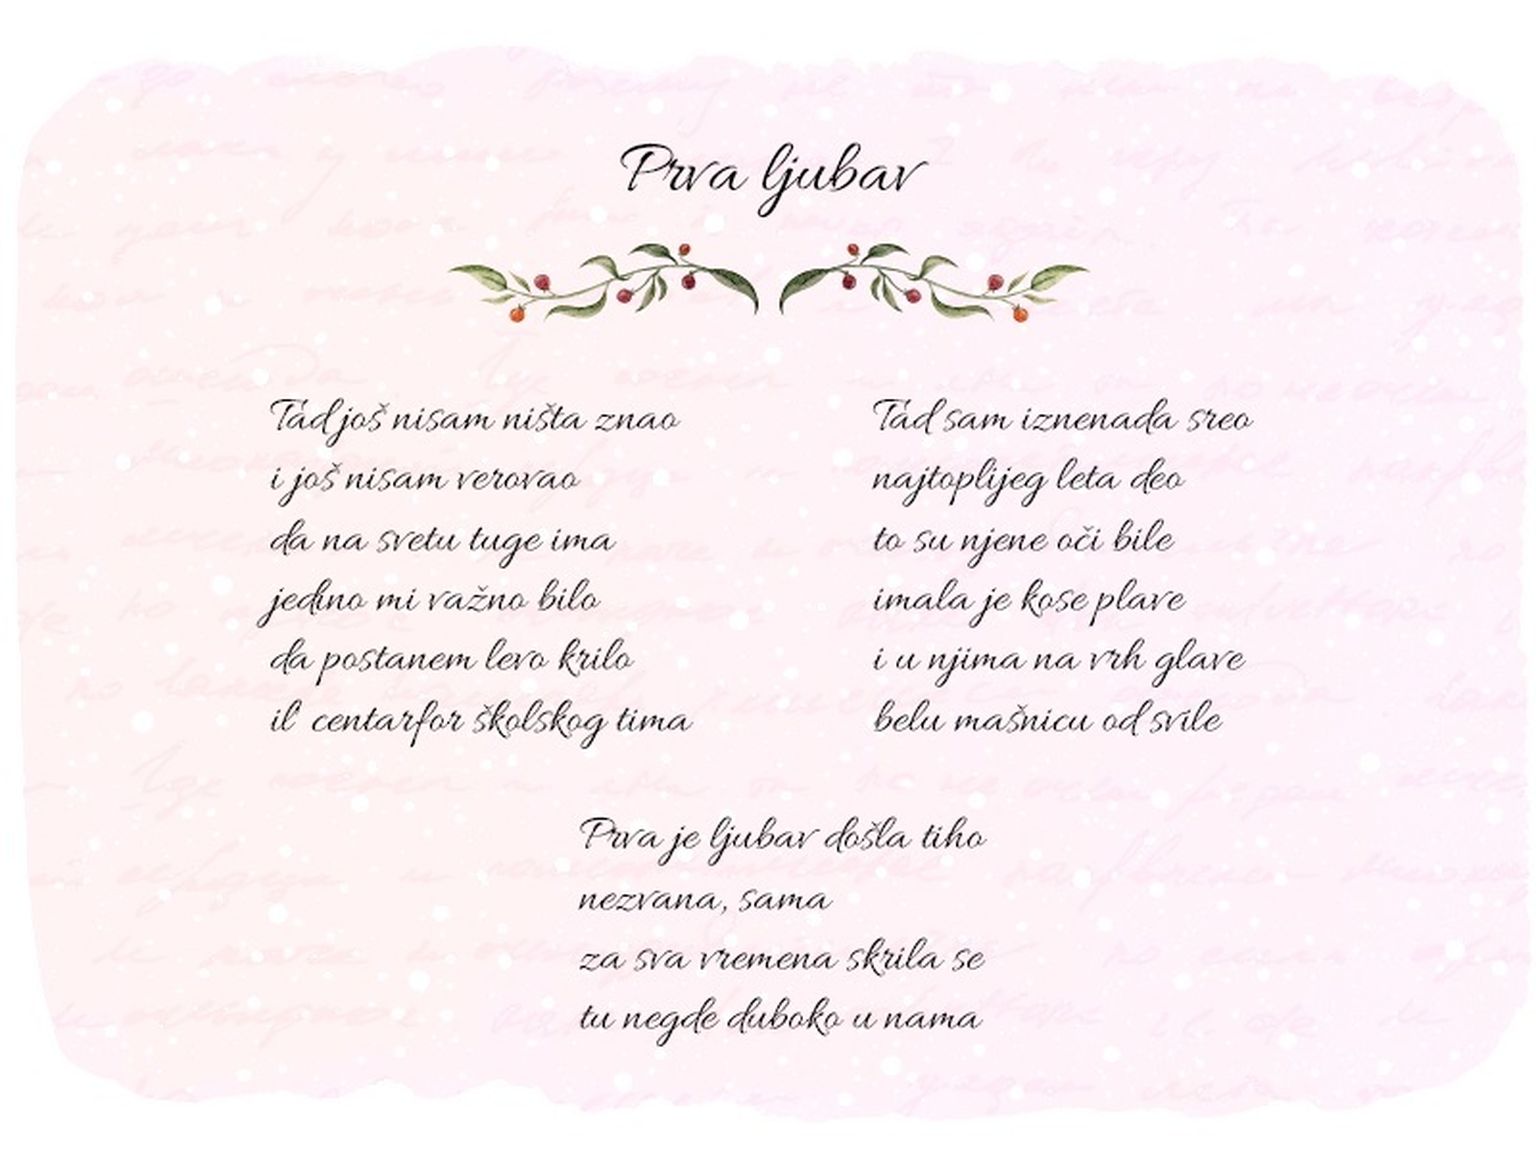 Prva ljubav
Tad još nisam ništa znao
i još nisam verovao
da na svetu tuge ima
jedino mi važno bilo
da postanem levo krilo
il' centarfor školskog tima
Tad sam iznenada sreo
najtoplijeg leta deo
to su njene oči bile
imala je kose plave
i u njima na vrh glave
belu mašnicu od svile
Prva je ljubav došla tiho
nezvana, sama
za sva vremena skrila se
tu negde duboko u nama